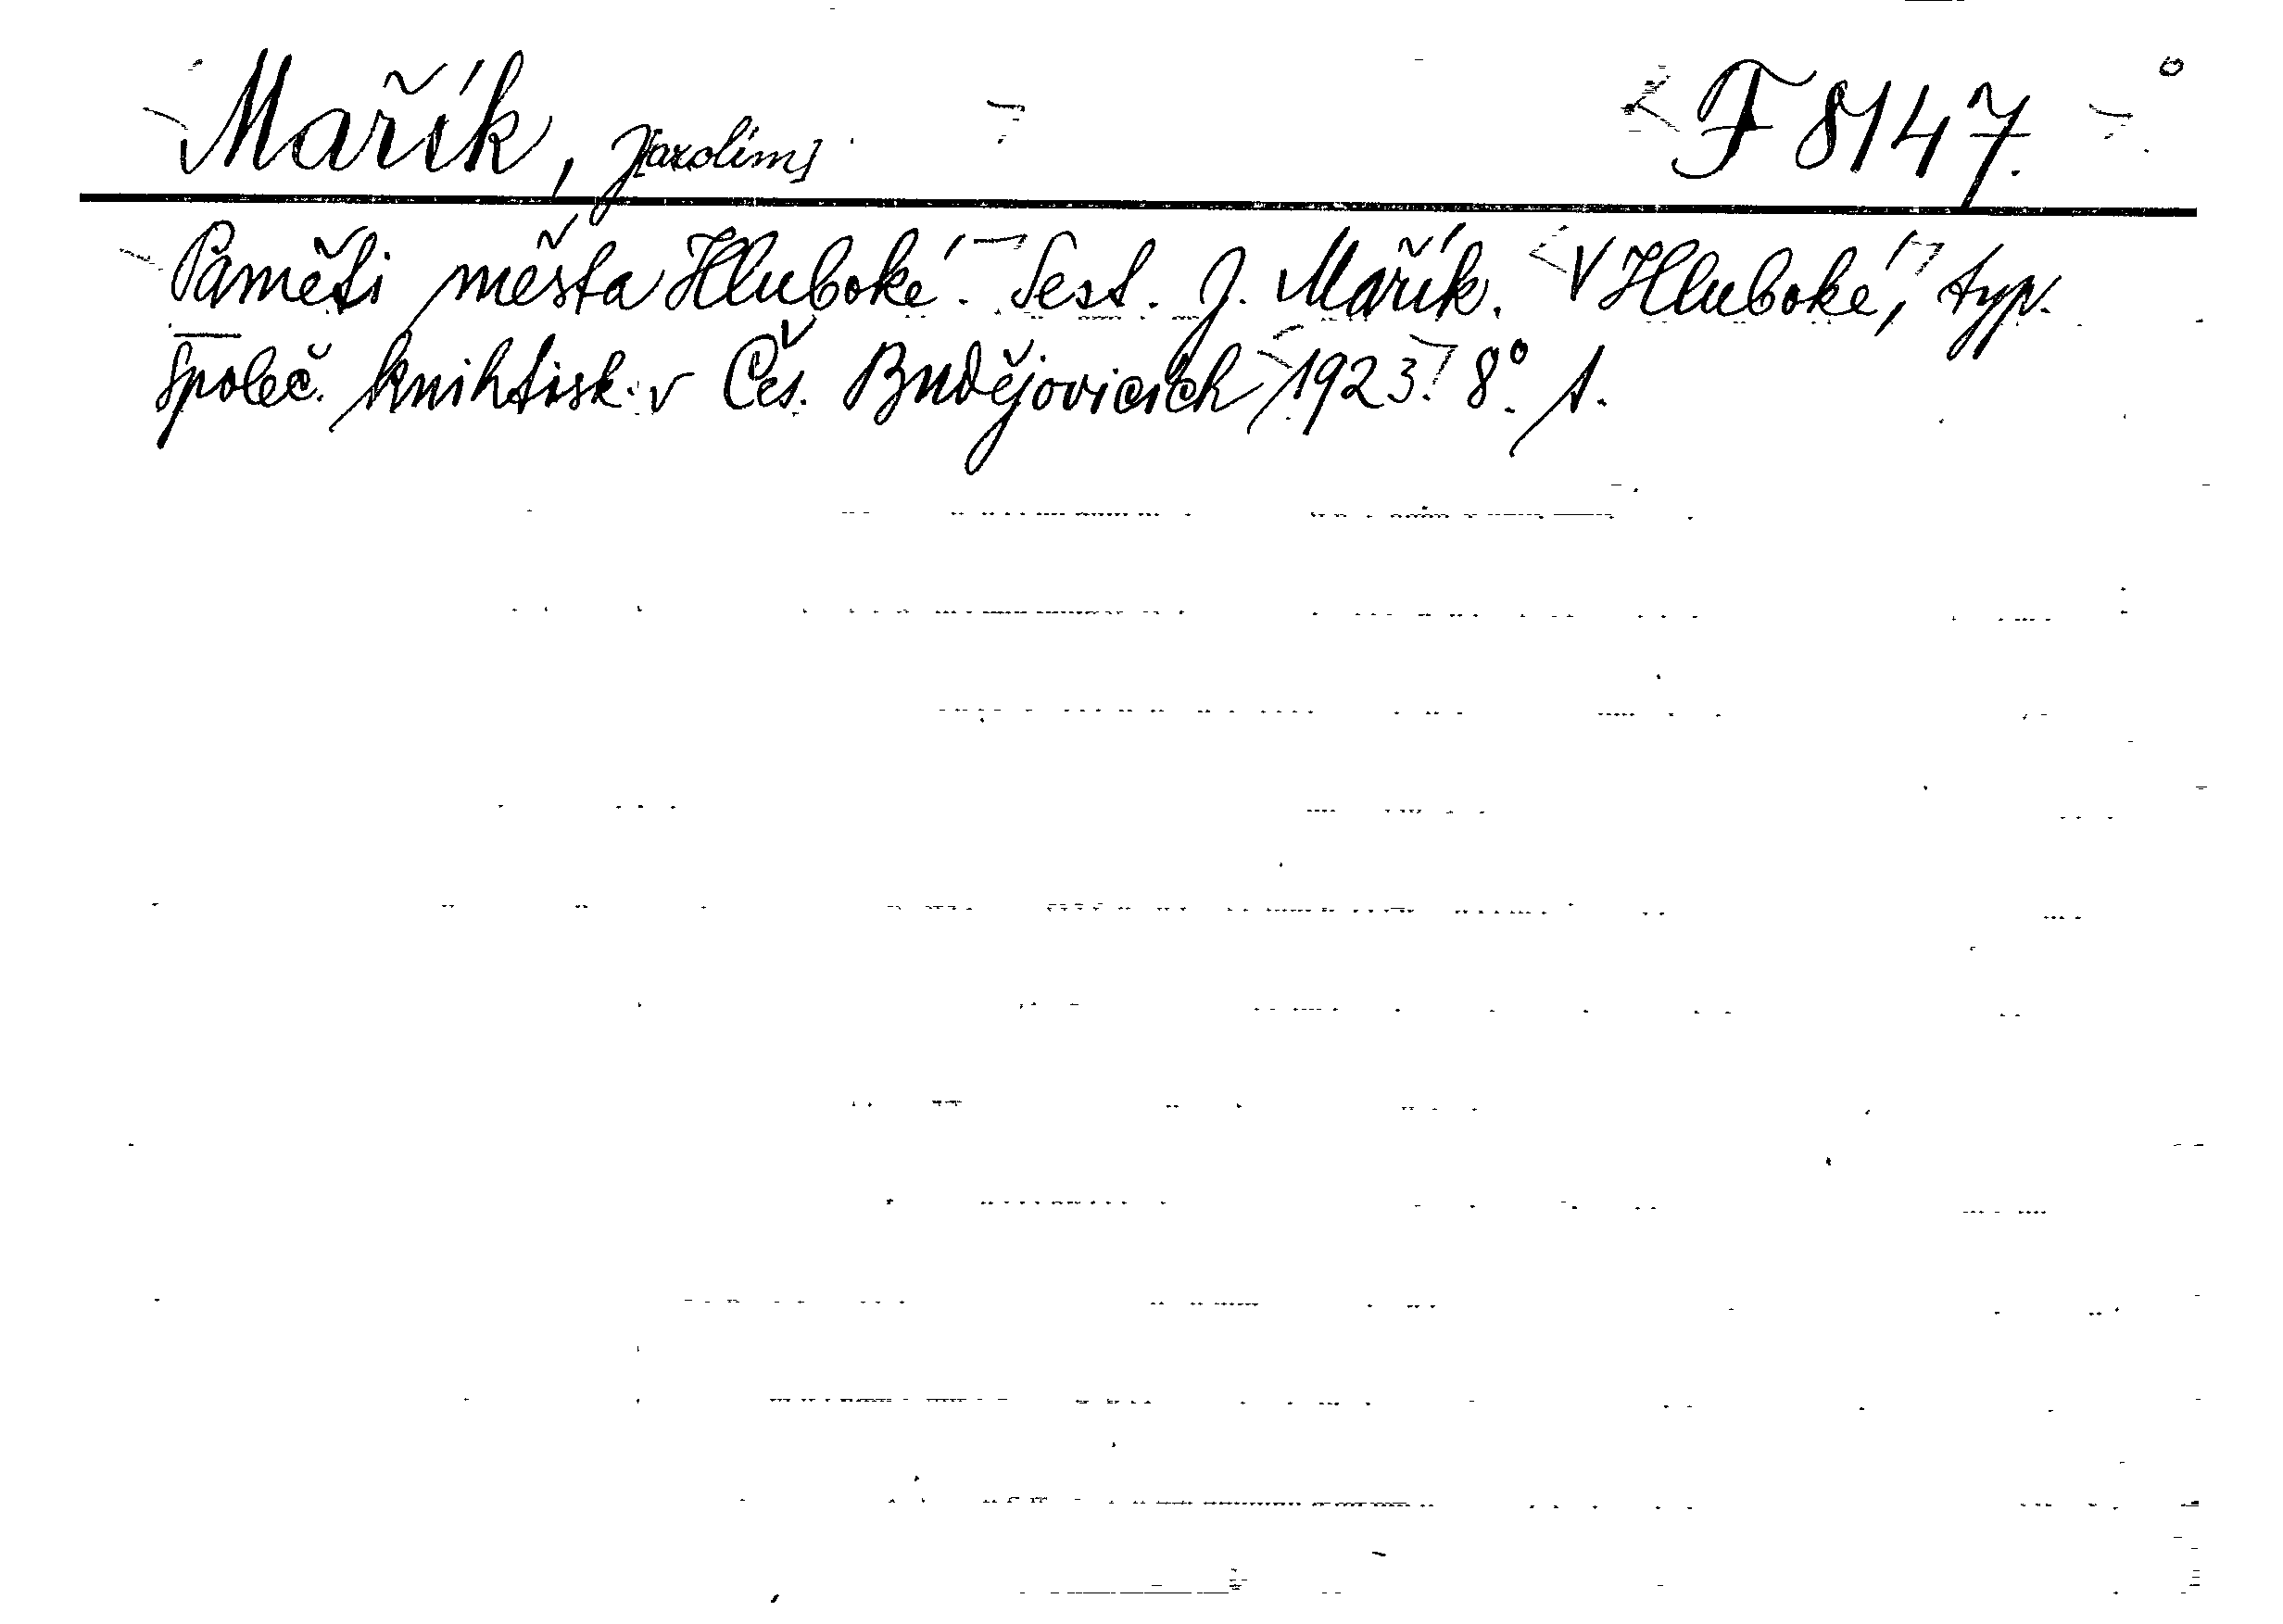 Mařík, J[arolím] F 8147.
Paměti města Hluboké. Sest. J. Mařík. V Hluboké, typ.
společ. knihtisk. v Čes. Budějovicích 1923. 8°. s.